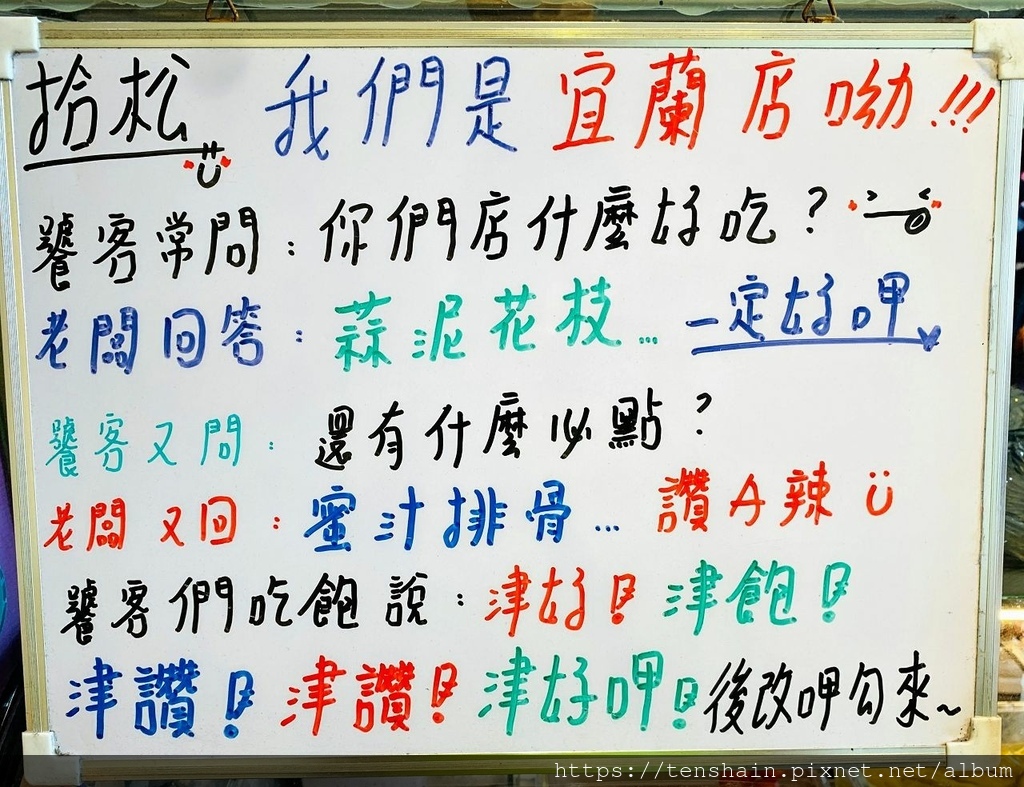 拾松 我們是宜蘭店呦!!!
饕客常問：你們店什麼好吃？
老闆回答：蒜泥花枝... 一定好呷
饕客又問：還有什麼必點？
老闆又回：蜜汁排骨... 讚A辣
饕客們吃飽說：津好！津飽！
津讚！津讚！津好呷！後改呷勾來~
https://tenshain.pixnet.net/album